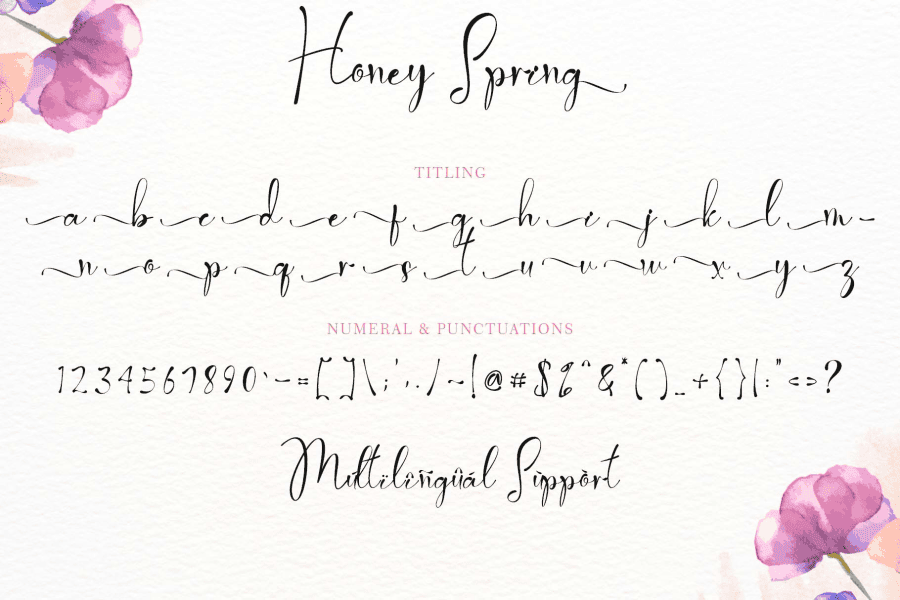 Honey Spring
TITLING
a b c d e f g h i j k l m
n o p q r s t u v w x y z
NUMERAL & PUNCTUATIONS
1234567890`-=[]\;',./~!@#$%^&*()_+{}|:"<>?
Mültilïñgüál Sùppòrt